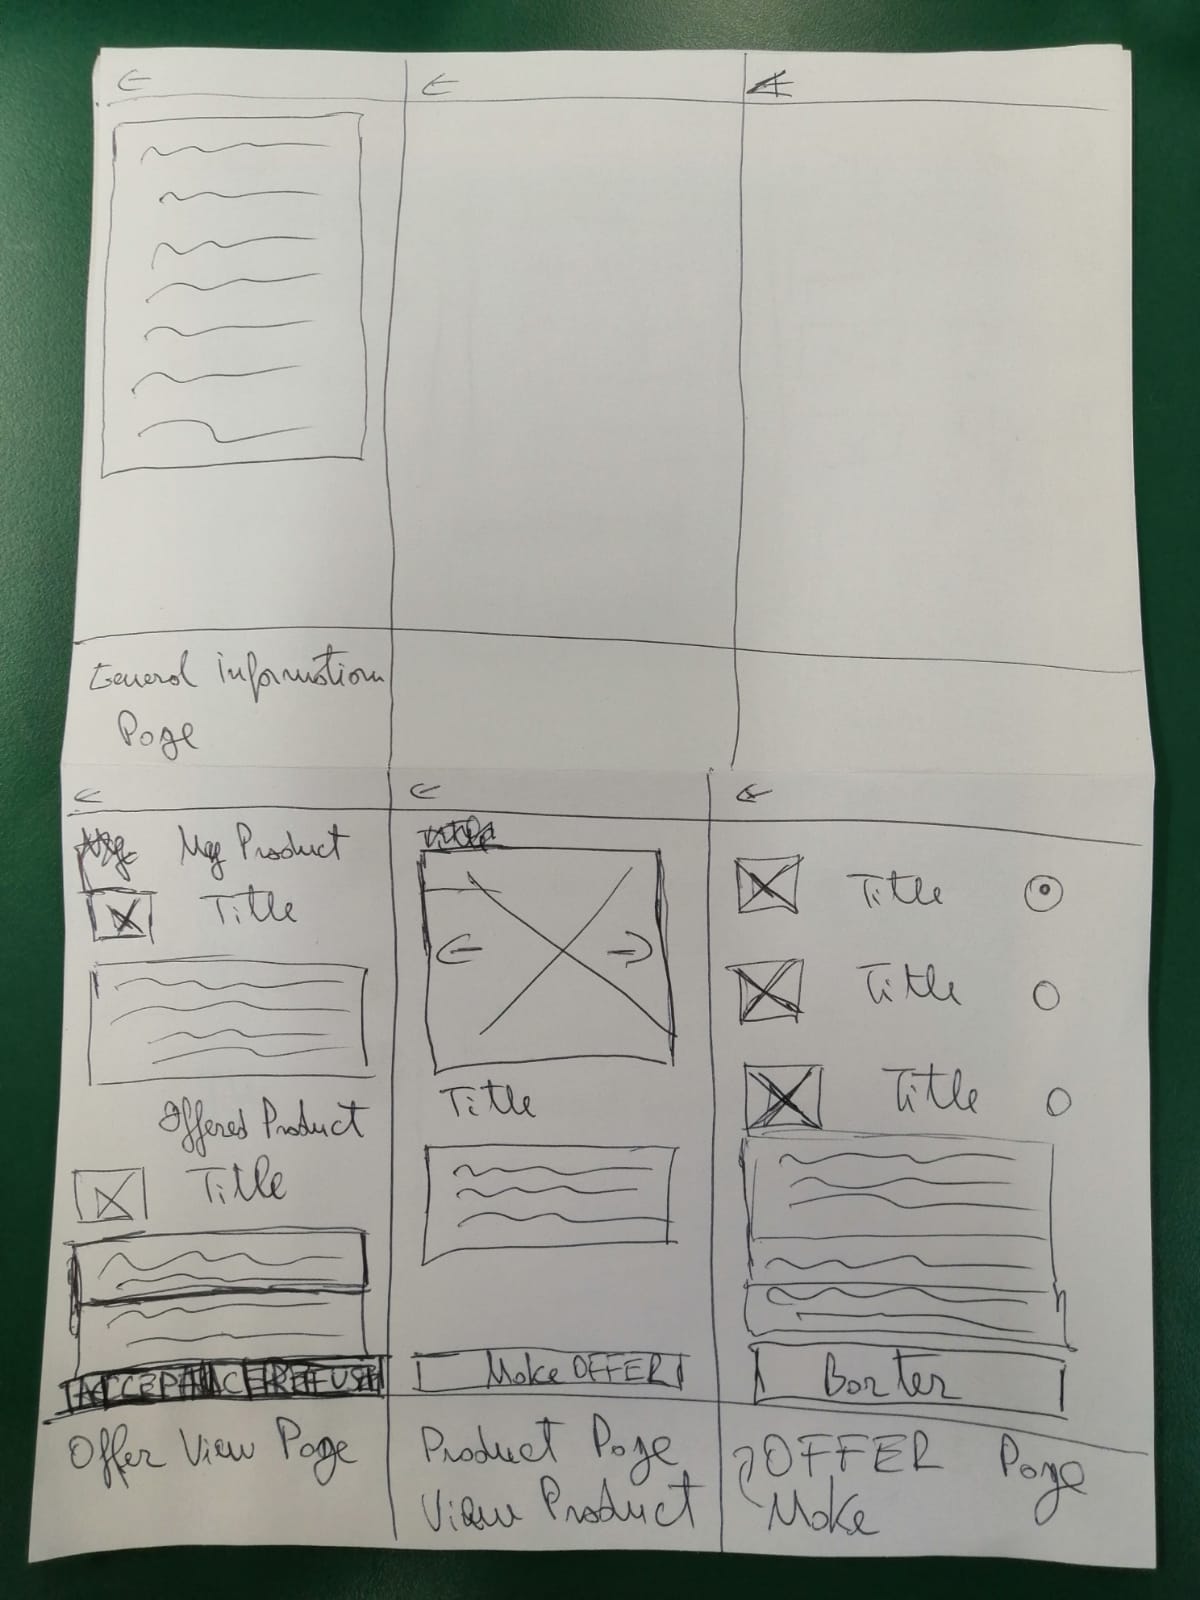 General Information
Page
My Product
Title
Offered Product
Title
Offer View Page
Title
Make OFFER
Product Page
View Product
Title
Title
Title
Barter
OFFER Page
Make